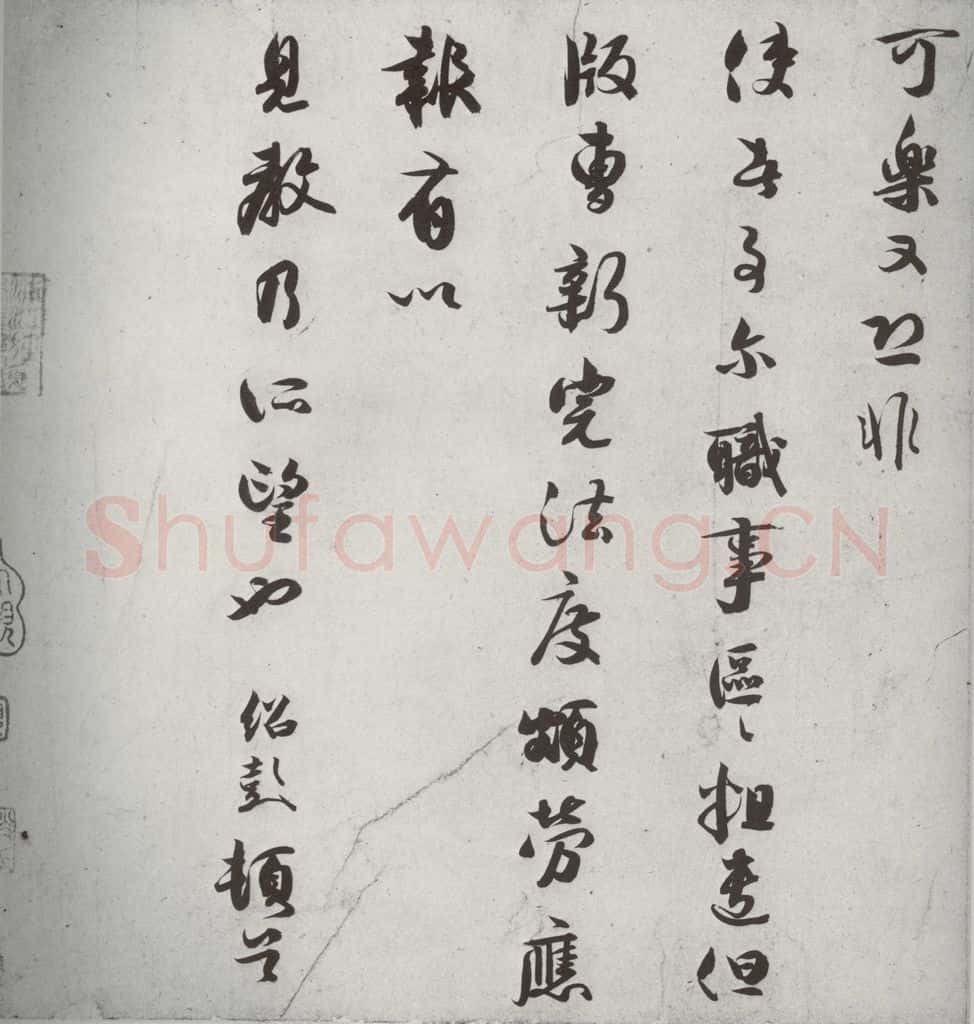 可樂又恐非
使者事尔職事區〻粗遣但
版曹新完法度頗勞應
報有以
見教乃所望也 紹彭頓首
Shufawang.CN